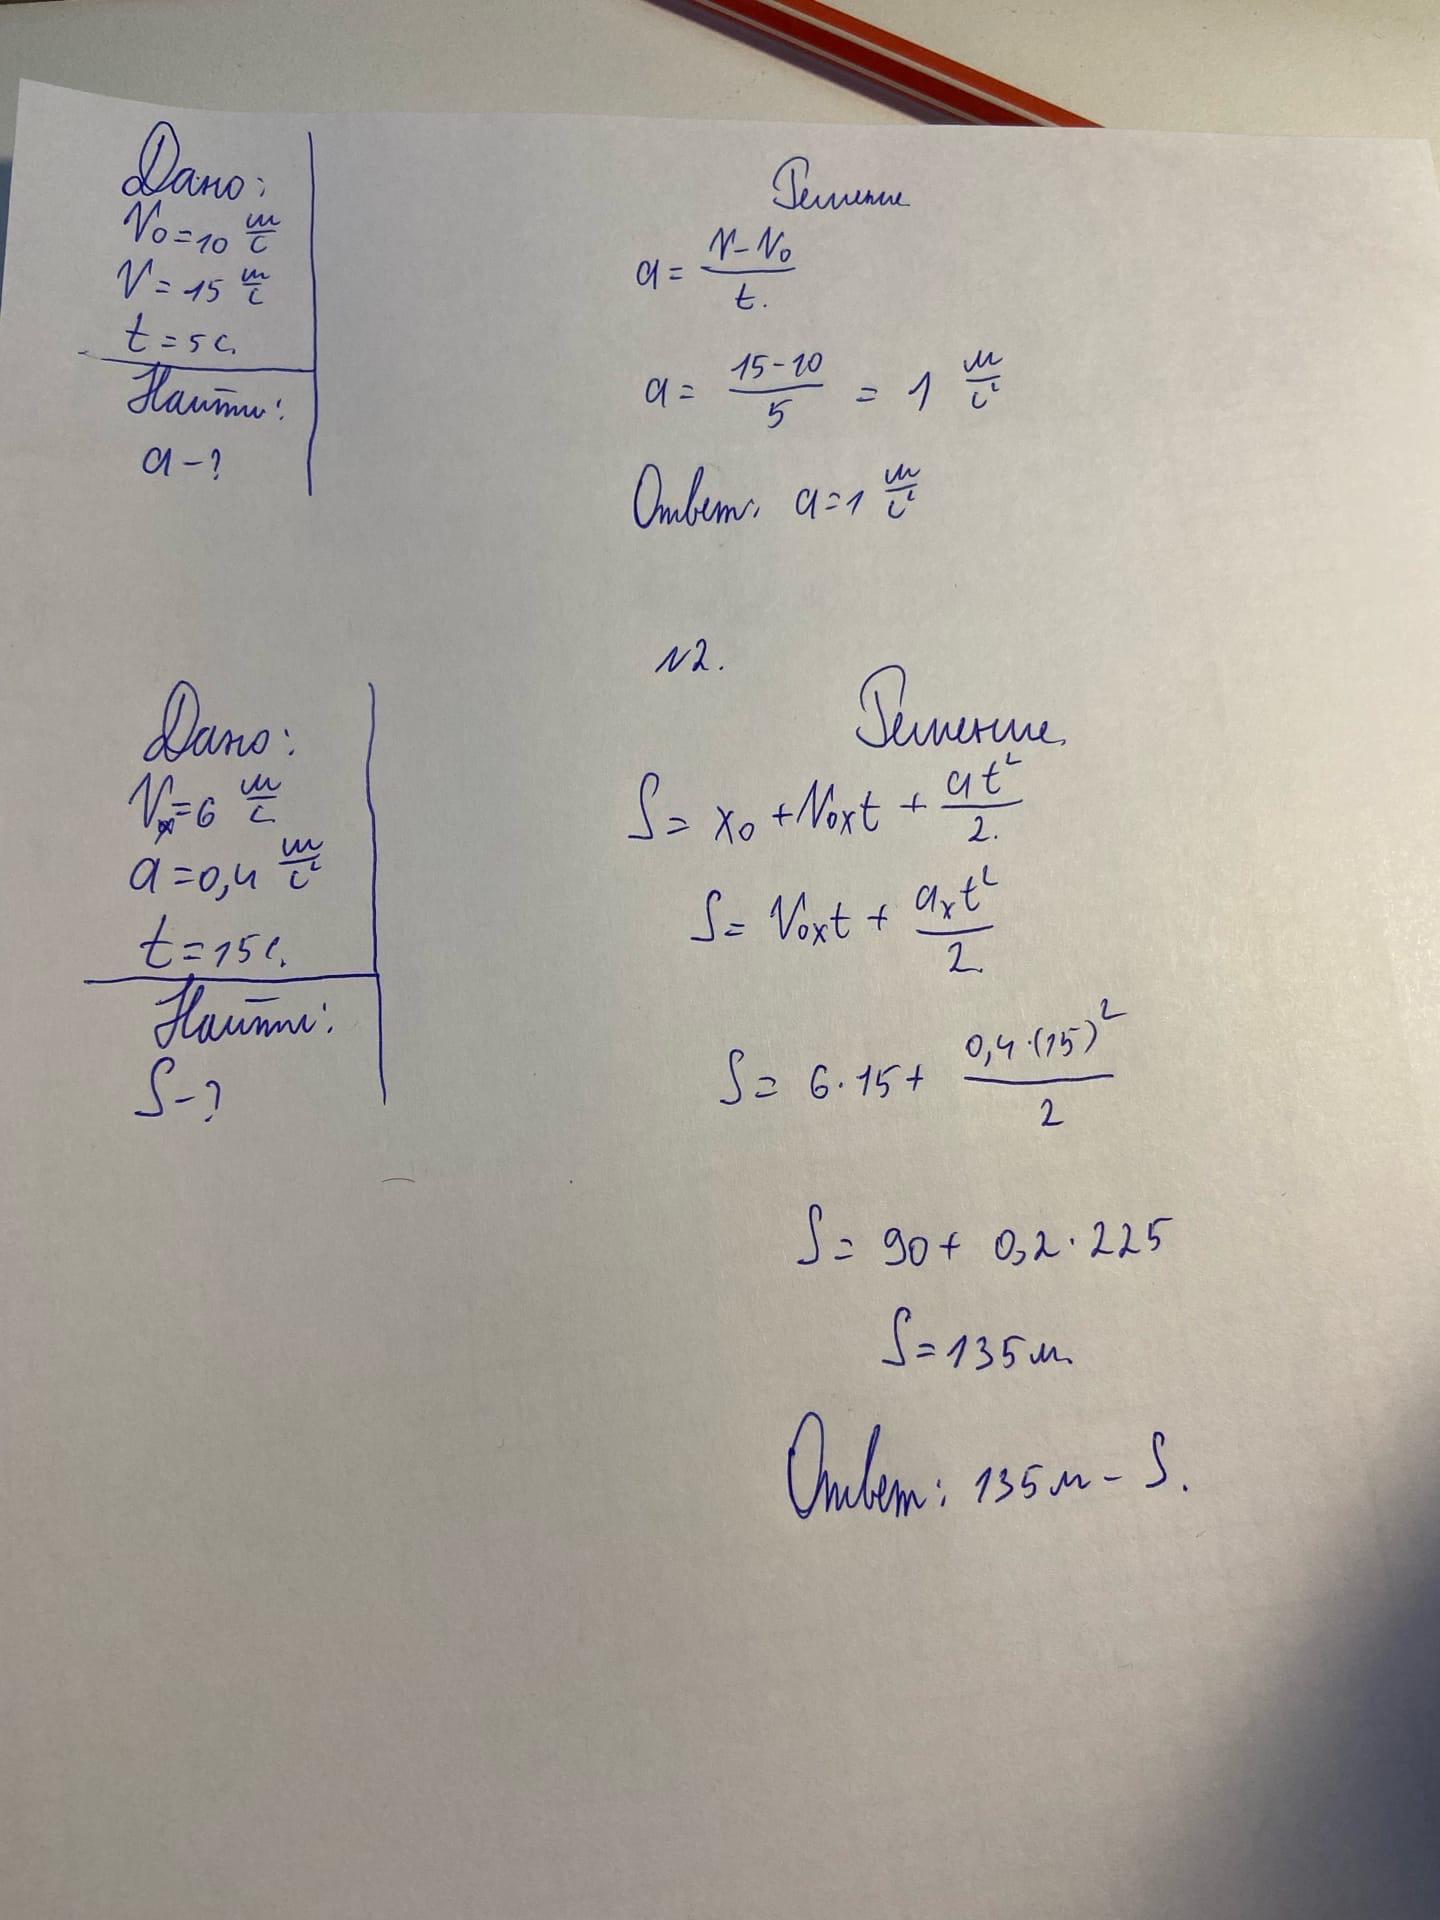 Дано:
V₀=10 м/с
V=15 м/с
t=5с.
Найти:
a-?
Решение
a= V-V₀/t.
a= 15-10/5 = 1 м/с²
Ответ: a=1 м/с²
N2.
Дано:
V=6 м/с
a=0,4 м/с²
t=15с.
Найти:
S-?
Решение.
S= x₀+V₀xt + at²/2.
S= V₀xt + aₓt²/2.
S= 6·15+ 0,4·(15)²/2
S= 90+ 0,2·225
S=135м.
Ответ: 135м-S.